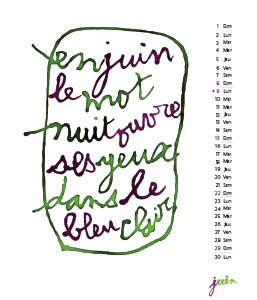 en juin
le mot
nuit ouvre
ses yeux
dans le
bleu clair
1 Dim
2 Lun
3 Mar
4 Mer
5 Jeu
6 Ven
7 Sam
8 Dim
9 Lun
10 Mar
11 Mer
12 Jeu
13 Ven
14 Sam
15 Dim
16 Lun
17 Mar
18 Mer
19 Jeu
20 Ven
21 Sam
22 Dim
23 Lun
24 Mar
25 Mer
26 Jeu
27 Ven
28 Sam
29 Dim
30 Lun